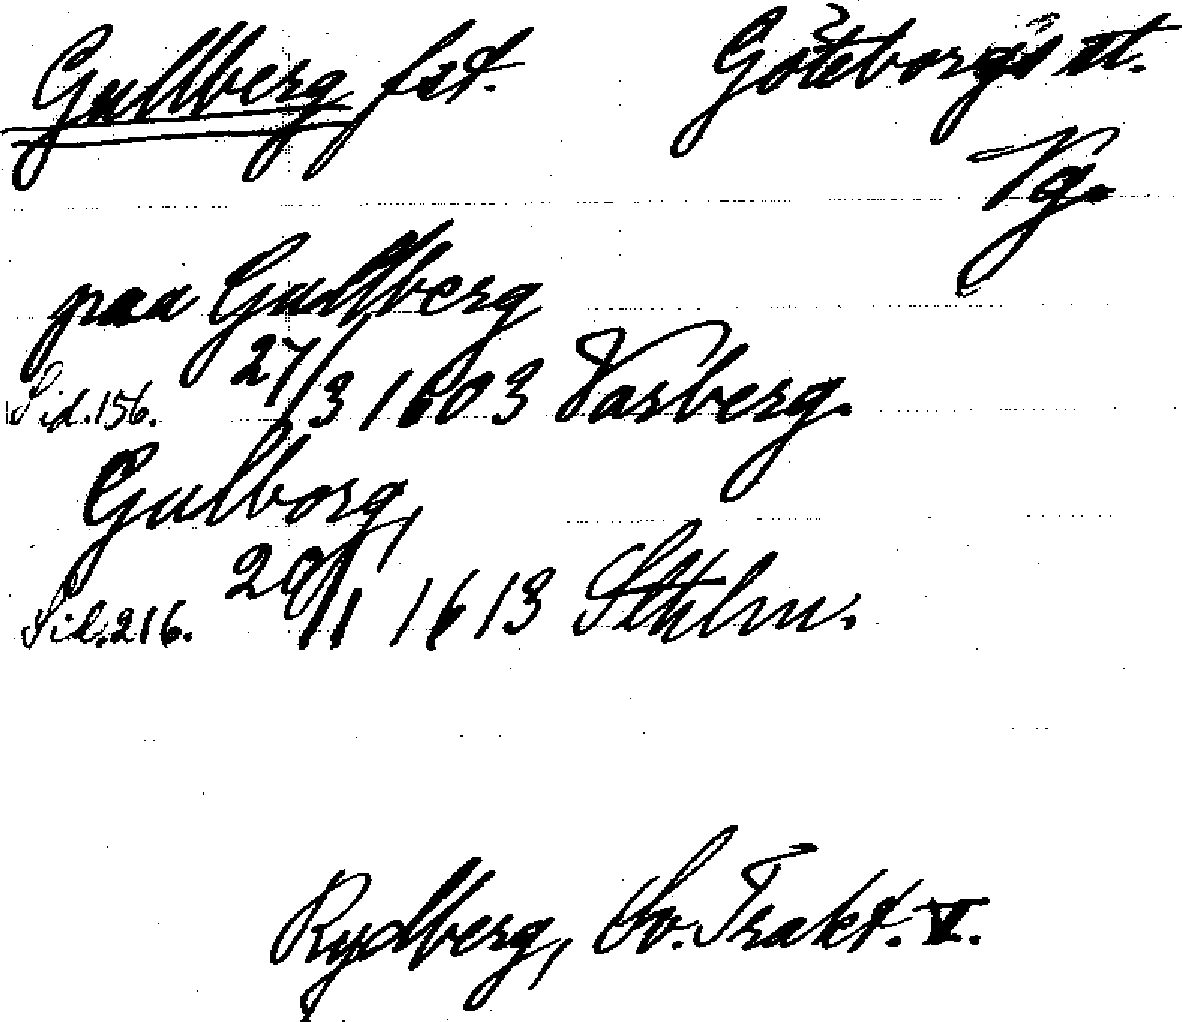 Gullberg fst. Göteborgs st.
Vg.
paa Gudlberg
Sid. 156. 27/3 1603 Varberg.
Gulborg,
Sid. 216. 20/1 1613 Sthlm.
Rydberg, Sv. Trakt. V.